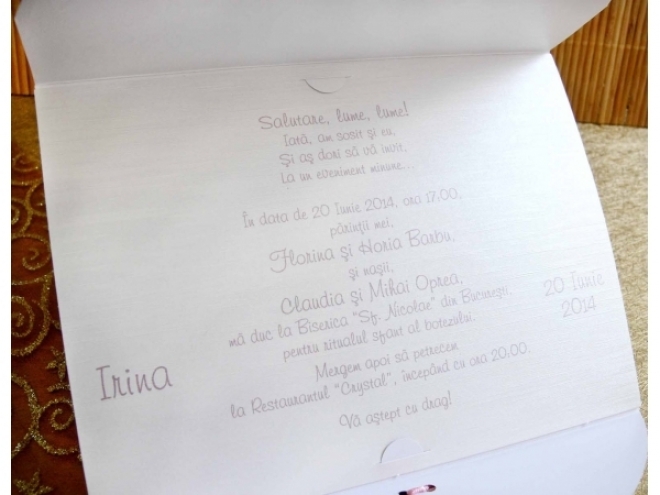 Salutare, lume, lume!
Iată, am sosit și eu,
Și aș dori să vă invit,
La un eveniment minune...
În data de 20 Iunie 2014, ora 17.00,
părinții mei,
Florina și Horia Barbu,
și nașii,
Claudia și Mihai Oprea,
mă duc la Biserica "Sf. Nicolae" din București
pentru ritualul sfânt al botezului.
Mergem apoi să petrecem
la Restaurantul "Crystal", începând cu ora 20.00.
Vă aștept cu drag!
Irina
20 Iunie
2014